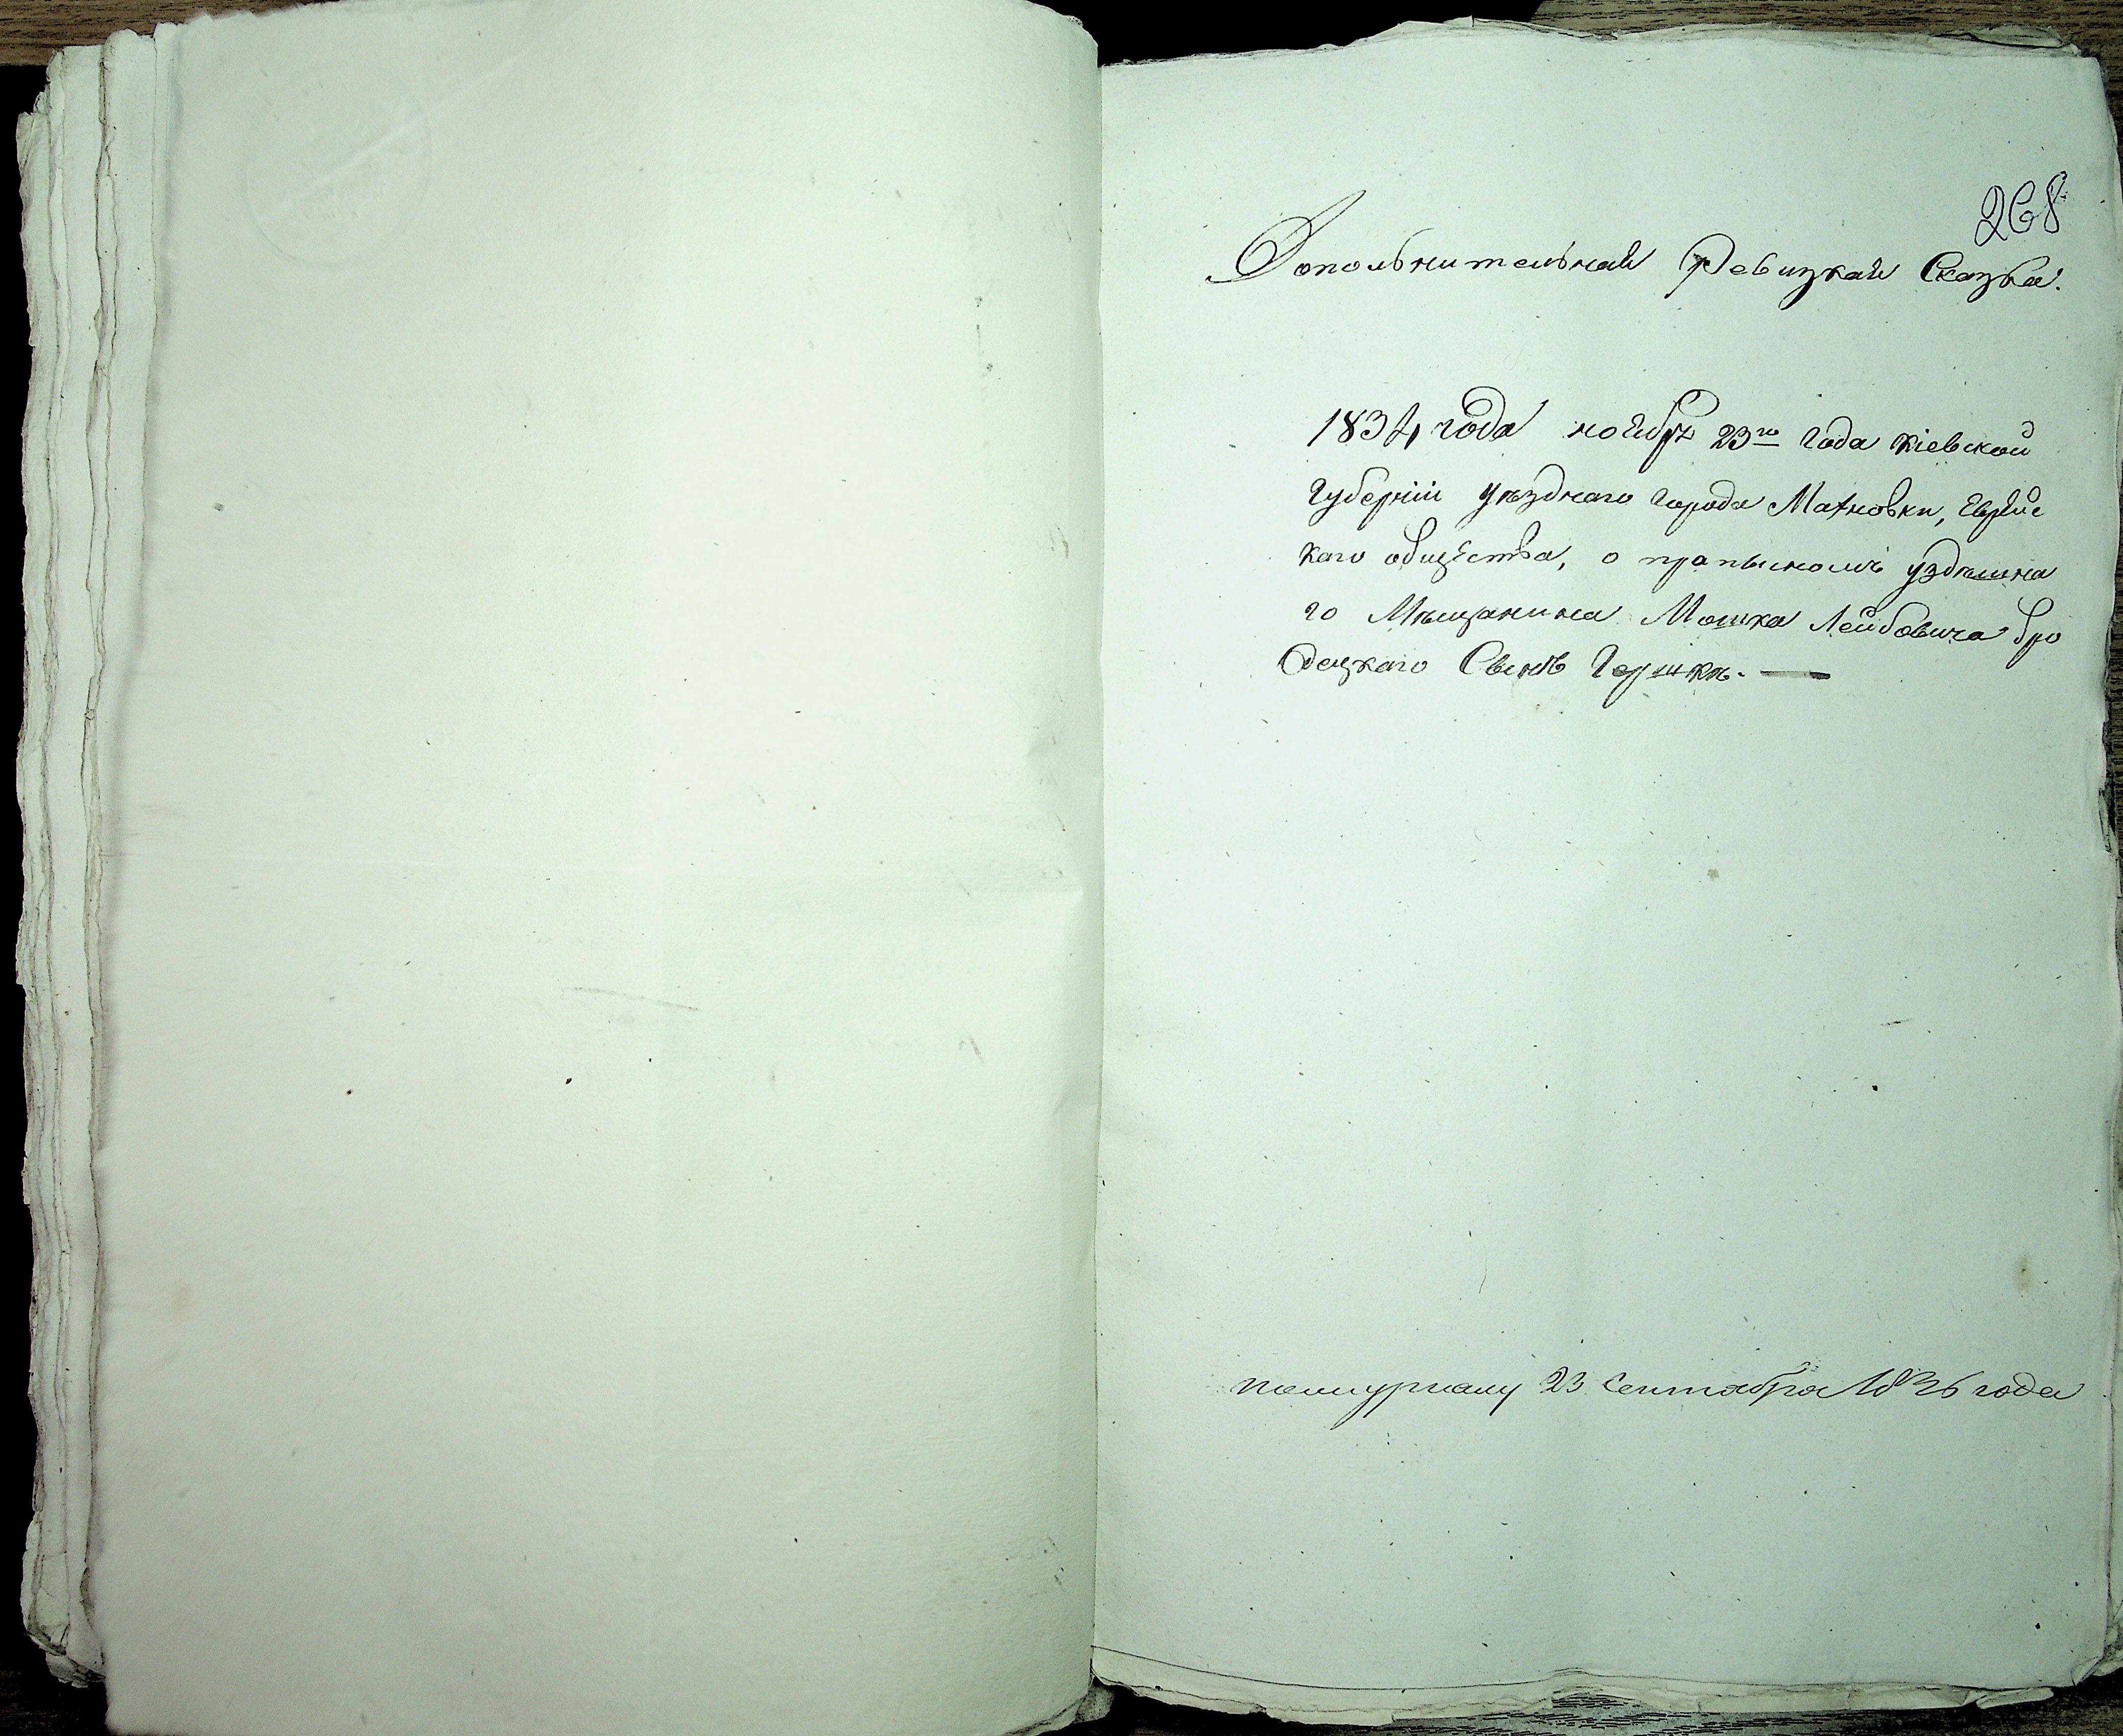 268
Допольнительная Ревизкая Сказка.
1834 года ноября 23го года Кіевской
Губерніи уезднаго Города Махновки, Еврейс
каго общества, о прапысномъ уздешна
го Мещанина Мошка Лейбовича Бро
децкаго Сынѣ Гершкѣ. —
пожурналу 23 Сентабра 1836 года